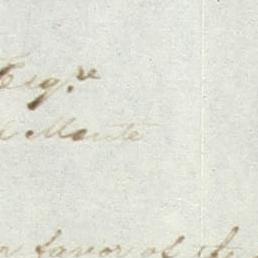 Esq.re
Monte
in favor of the